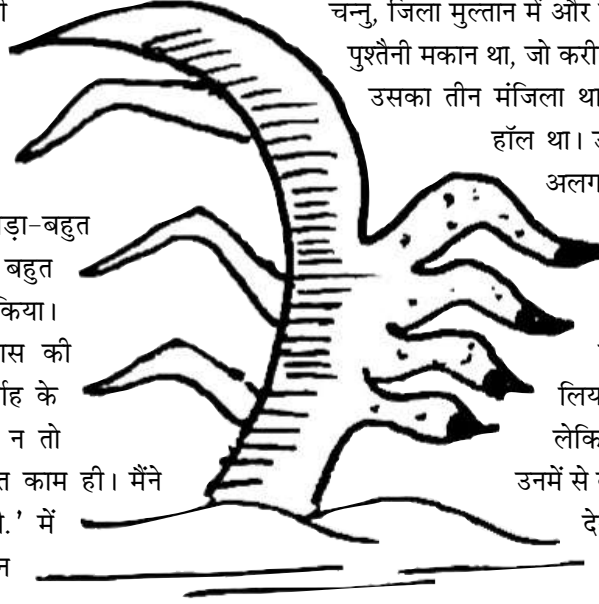 ड़ा-बहुत
बहुत
किया।
ास की
ाह के
न तो
त काम ही। मैंने
ी.’ में
न
चन्नु, जिला मुल्तान में और
पुश्तैनी मकान था, जो करी
उसका तीन मंजिला था
हॉल था।
अलग
लिय
लेकि
उनमें से
दे